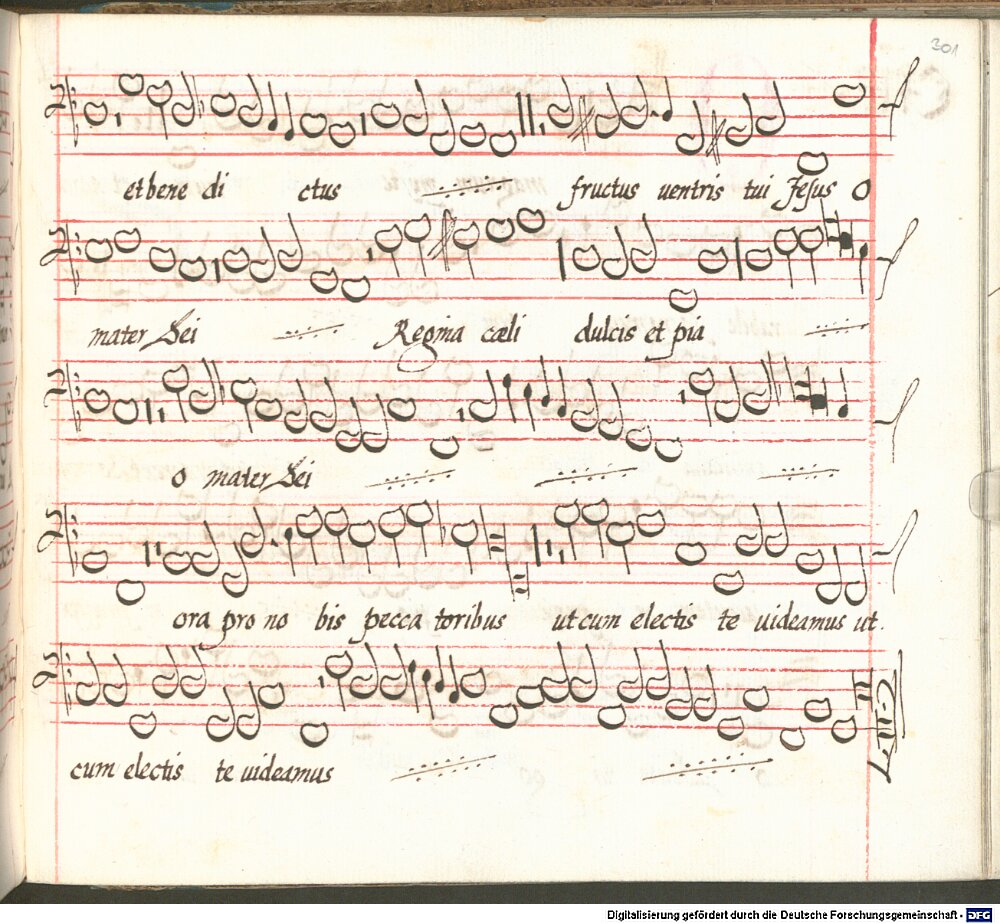 301
et bene di ctus fructus uentris tui Jesus O
mater Dei Regina cæli dulcis et pia
o mater Dei
ora pro no bis pecca toribus ut cum electis te uideamus ut.
cum electis te uideamus
Digitalisierung gefördert durch die Deutsche Forschungsgemeinschaft - DFG